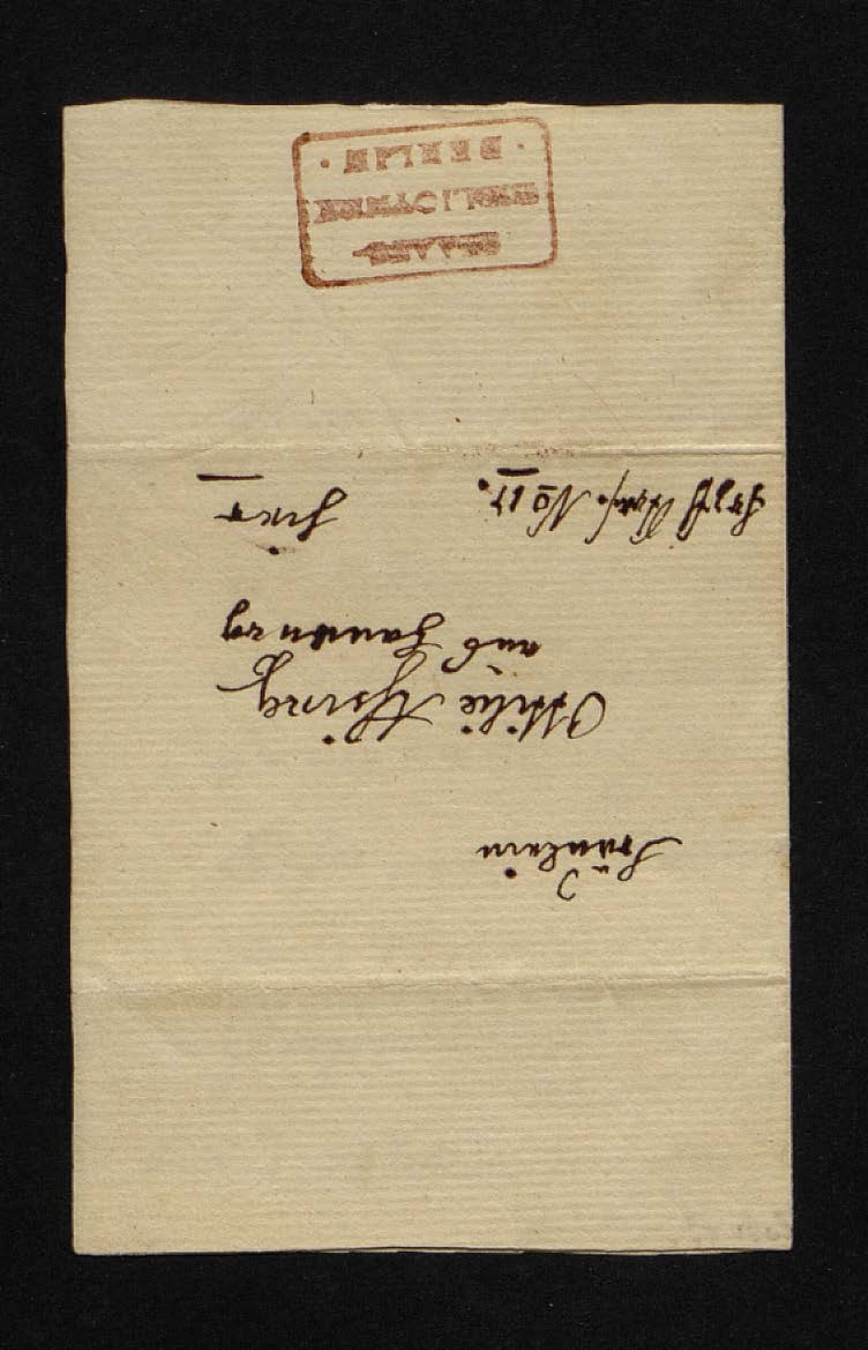 Fräulein
Ottilie Assing
aus Hamburg
No 17.
hier
STAATS-
BIBLIOTHEK
· BERLIN ·